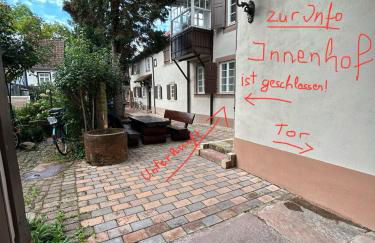 zur Info
Innenhof
ist geschlassen!
Tor
Unterkunft